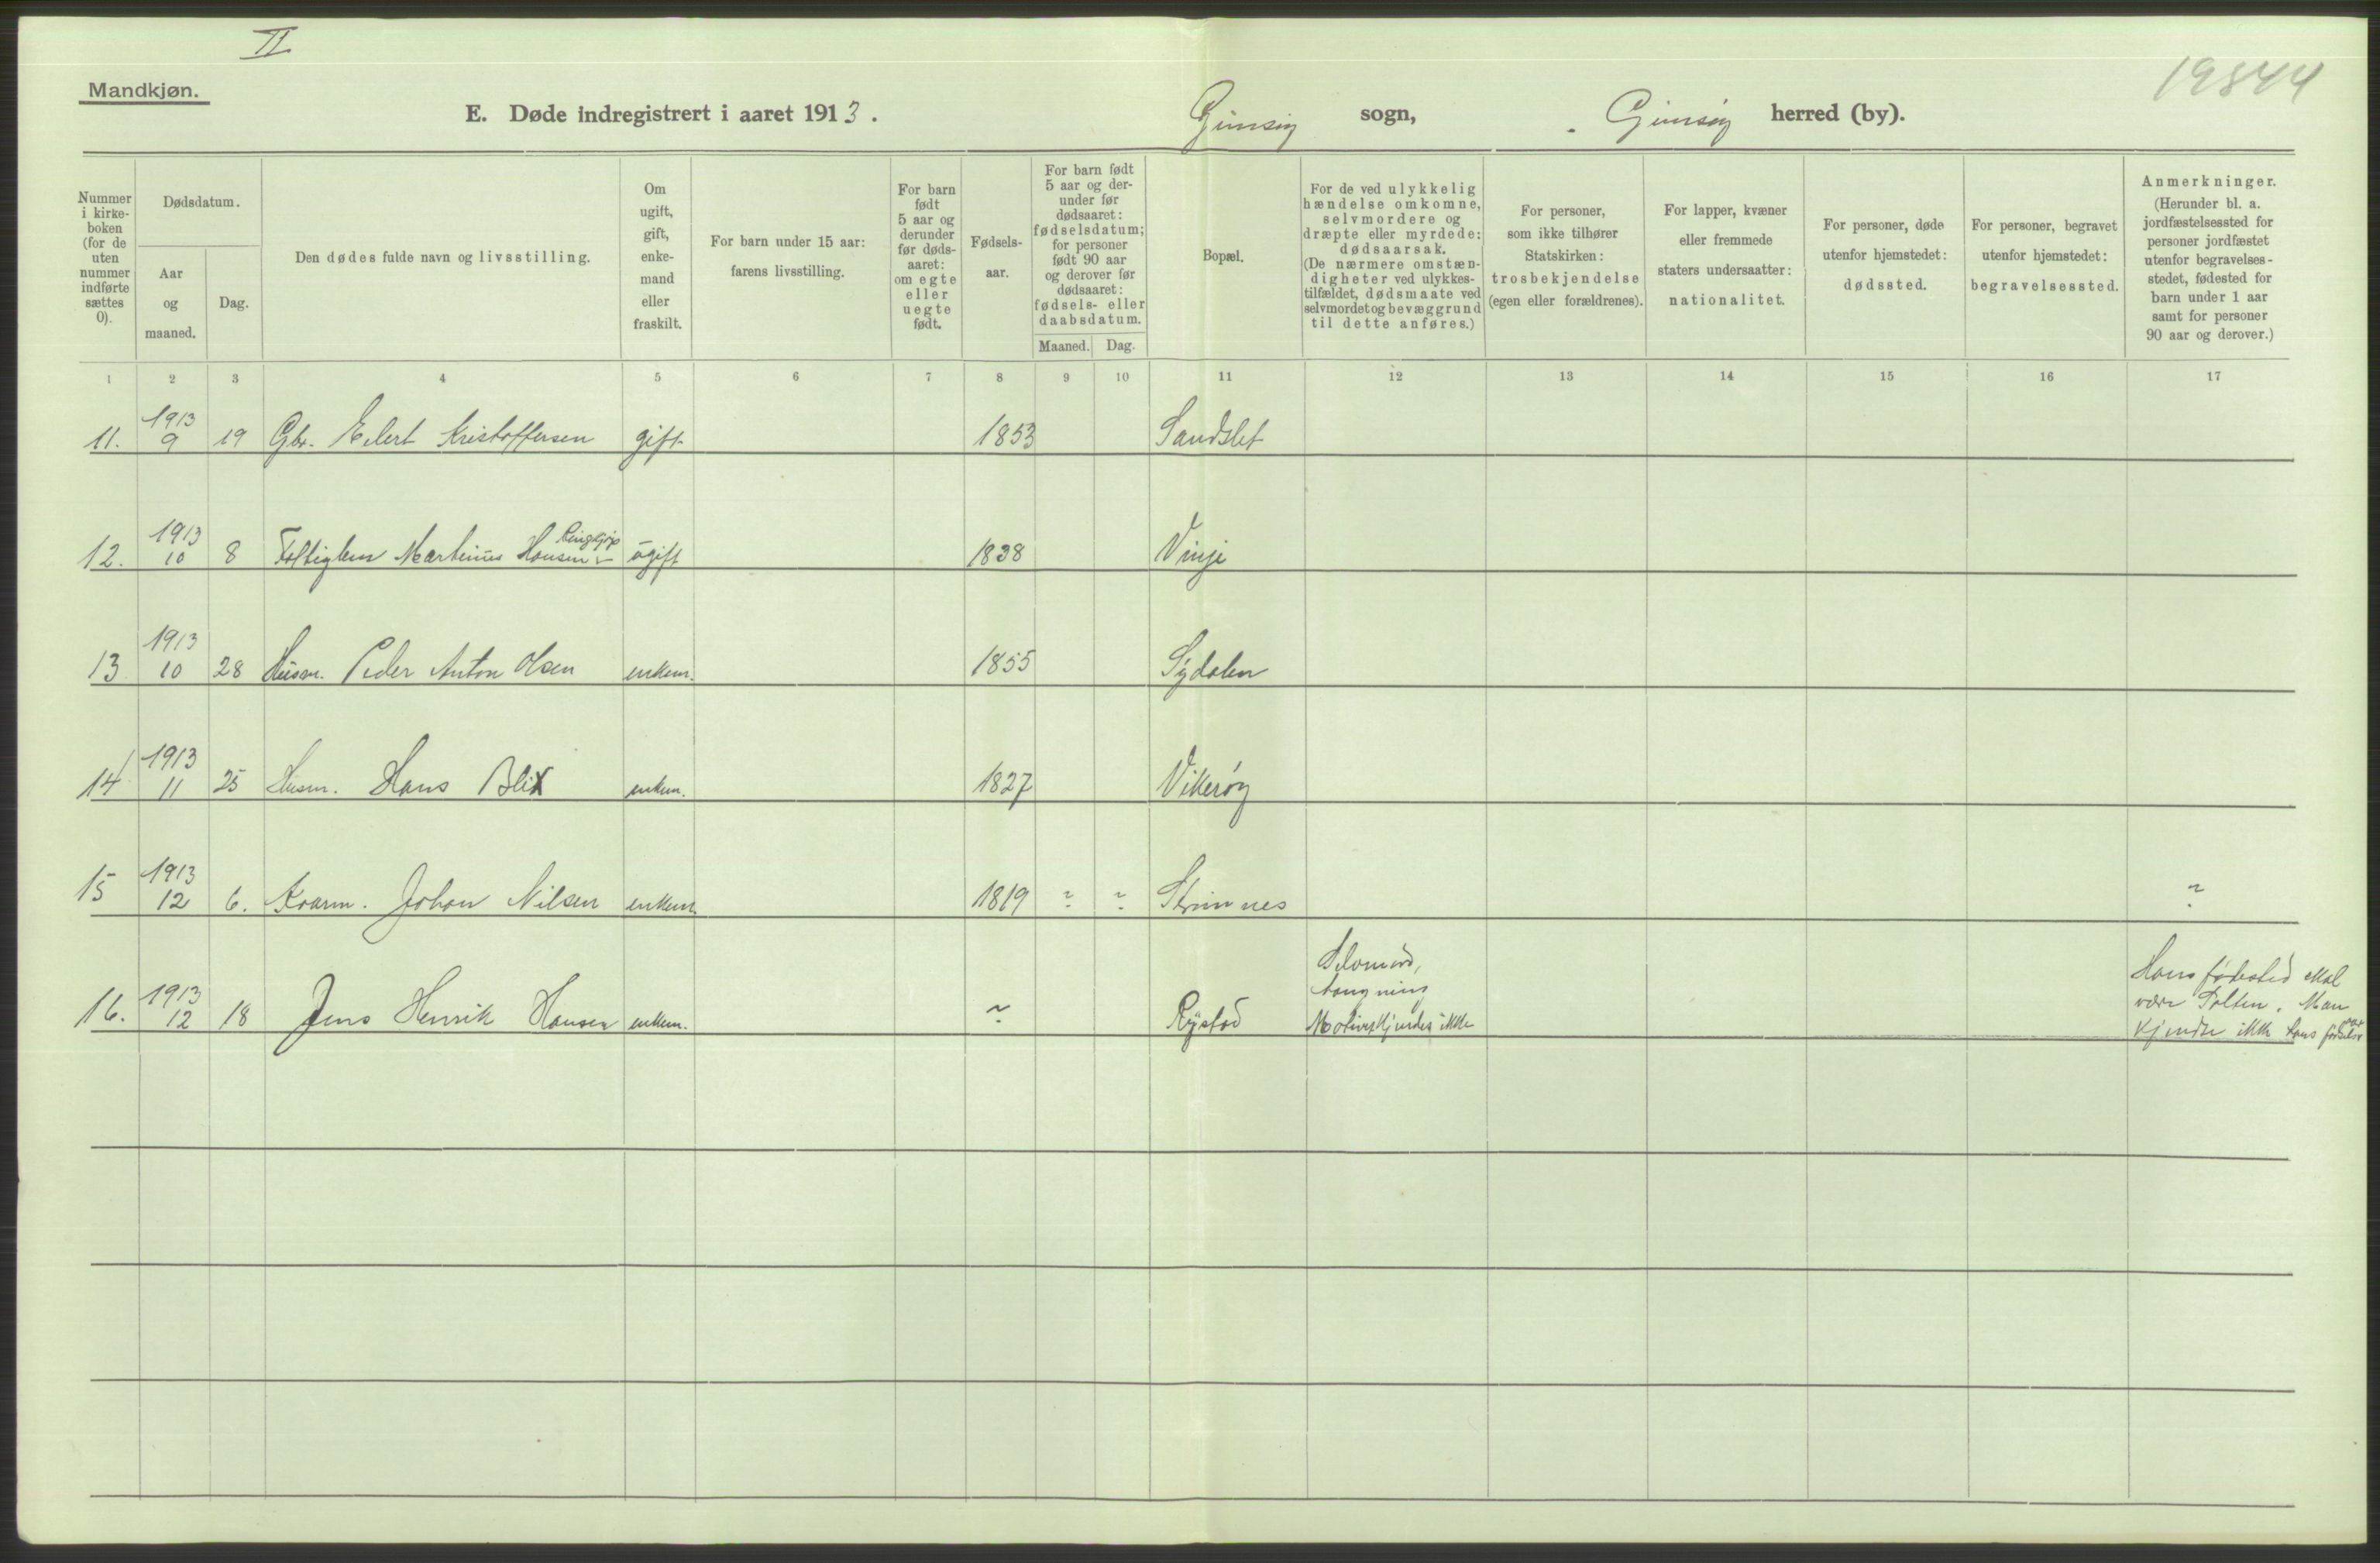 II
19844
Mandkjøn.
E. Døde indregistrert i aaret 1913.
Gimsøy sogn, Gimsøy herred (by).
Nummer i kirke-boken (for de uten nummer indførte sættes 0).
Dødsdatum.
Aar og maaned.
Dag.
Den dødes fulde navn og livsstilling.
Om ugift, gift, enke-mand eller fraskilt.
For barn under 15 aar: farens livsstilling.
For barn født 5 aar og derunder før døds-aaret: om egte eller uegte født.
Fødsels-aar.
For barn født 5 aar og der-under før dødsaaret: fødselsdatum; for personer født 90 aar og derover før dødsaaret: fødsels- eller daabsdatum.
Maaned. Dag.
Bopæl.
For de ved ulykkelig hændelse omkomne, selvmordere og dræpte eller myrdede: dødsaarsak. (De nærmere omstæn-digheter ved ulykkes-tilfældet, dødsmaate ved selvmordet og bevæggrund til dette anføres.)
For personer, som ikke tilhører Statskirken: trosbekjendelse (egen eller forældrenes).
For lapper, kvæner eller fremmede staters undersaatter: nationalitet.
For personer, døde utenfor hjemstedet: dødssted.
For personer, begravet utenfor hjemstedet: begravelsessted.
Anmerkninger. (Herunder bl. a. jordfæstelsessted for personer jordfæstet utenfor begravelses-stedet, fødested for barn under 1 aar samt for personer 90 aar og derover.)
1 2 3 4 5 6 7 8 9 10 11 12 13 14 15 16 17
11. 1913 9 19 Gbr. Eilert Kristoffersen gift 1853 Sandslet
12. 1913 10 8 Fattiglem Martinus Hansen ugift 1838 Vinje
13 1913 10 28 Husm. Peder Anton Olsen enkem. 1855 Sydalen
14 1913 11 25 Husm. Hans Blix enkem. 1827 Vikerøy
15 1913 12 6. Kaarm. Johan Nilsen enkem. 1819 ? ? Strømnes ?
16. 1913 12 18 Jens Henrik Hansen enkem. ? Rystad
Selvmord,
hængning
Motivet kjendes ikke
Hans fødested skal
være Salten. Man
kjender ikke hans fødselsaar